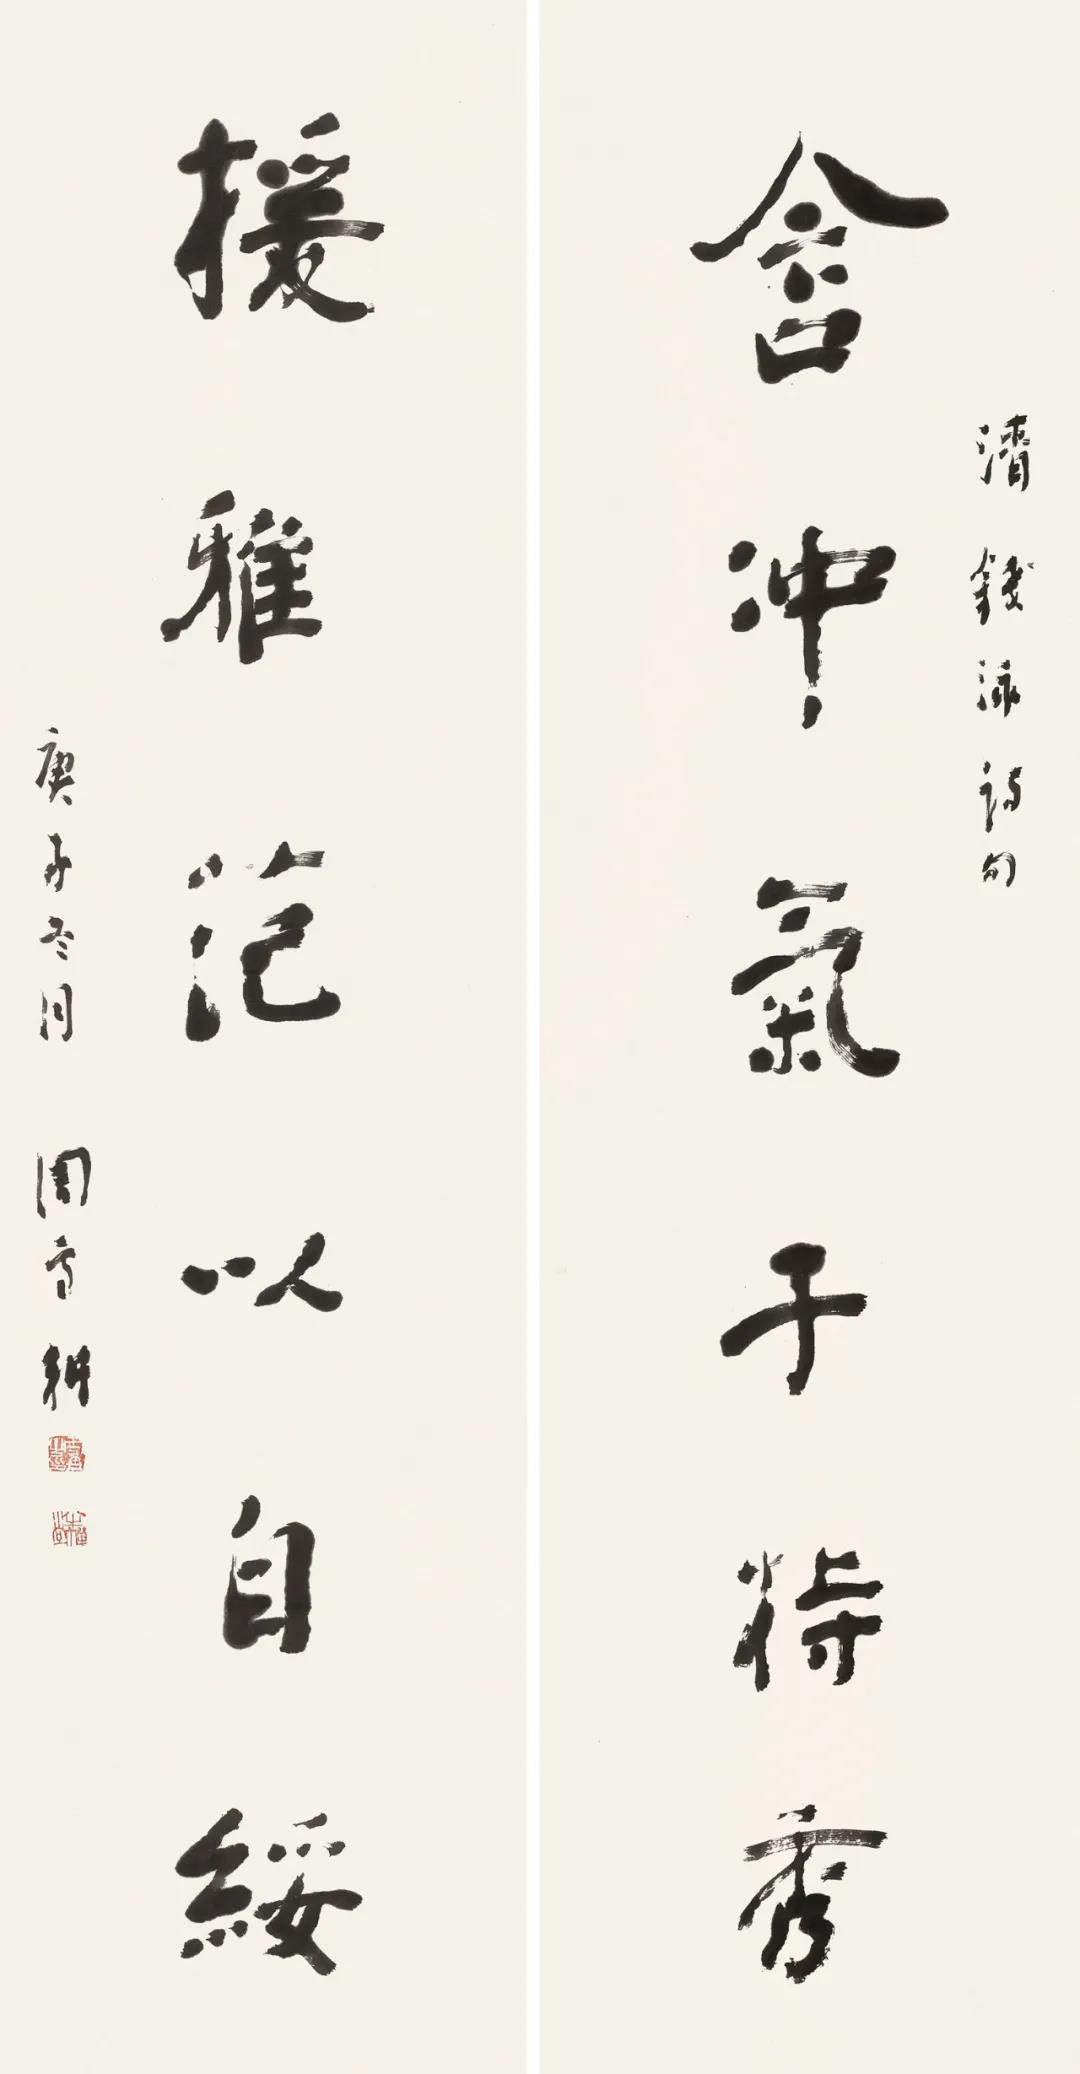 清錢泳詩句
含沖氣于特秀
援雅范以自綏
庚子冬月 周雪耕